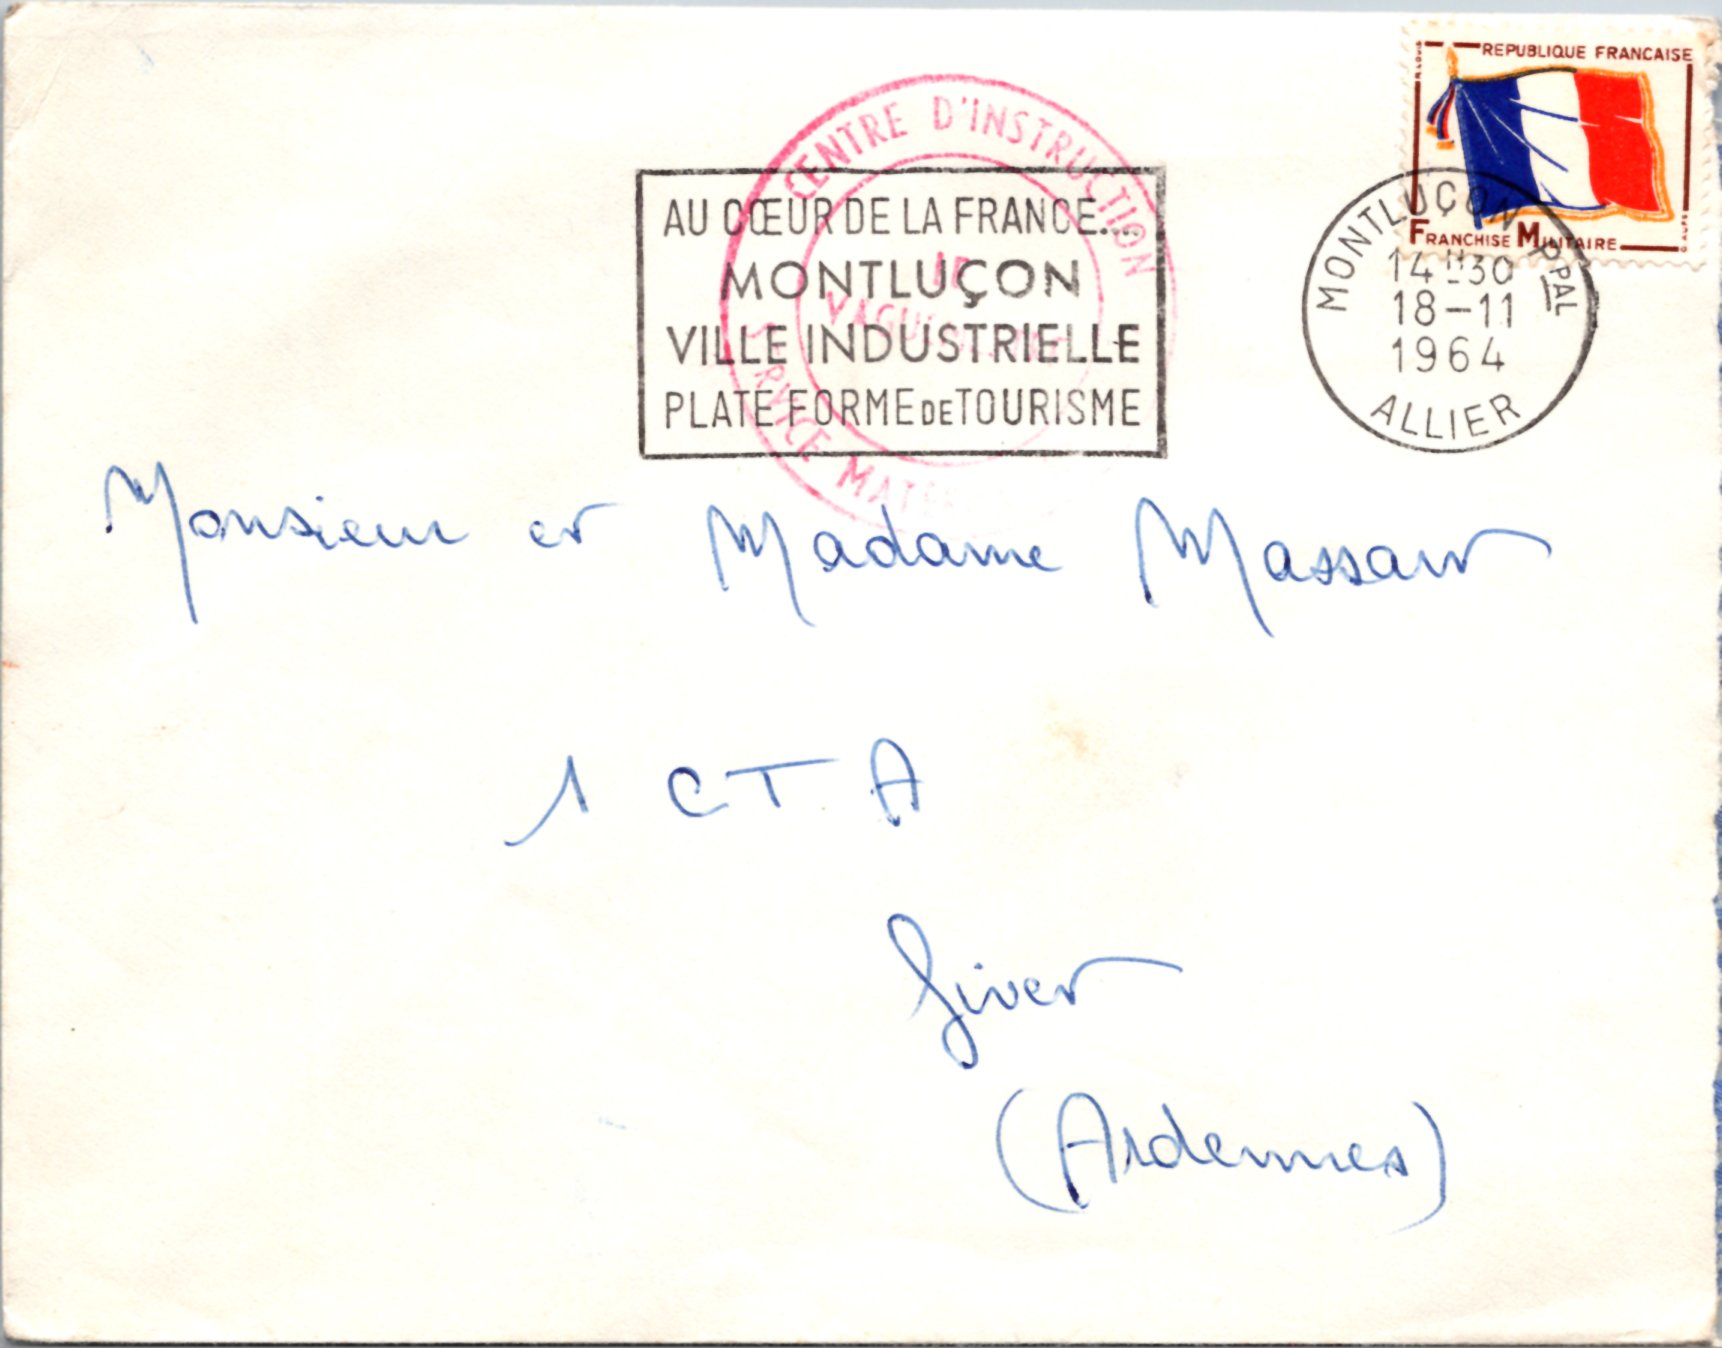 REPUBLIQUE FRANCAISE
FRANCHISE MILITAIRE
MONTLUÇON PPAL
14H30
18-11
1964
ALLIER
CENTRE D'INSTRUCTION
LE
SERVICE
AU CŒUR DE LA FRANCE...
MONTLUÇON
VILLE INDUSTRIELLE
PLATE FORME DE TOURISME
Monsieur et Madame Massaut
1 C T A
Givet
(Ardennes)